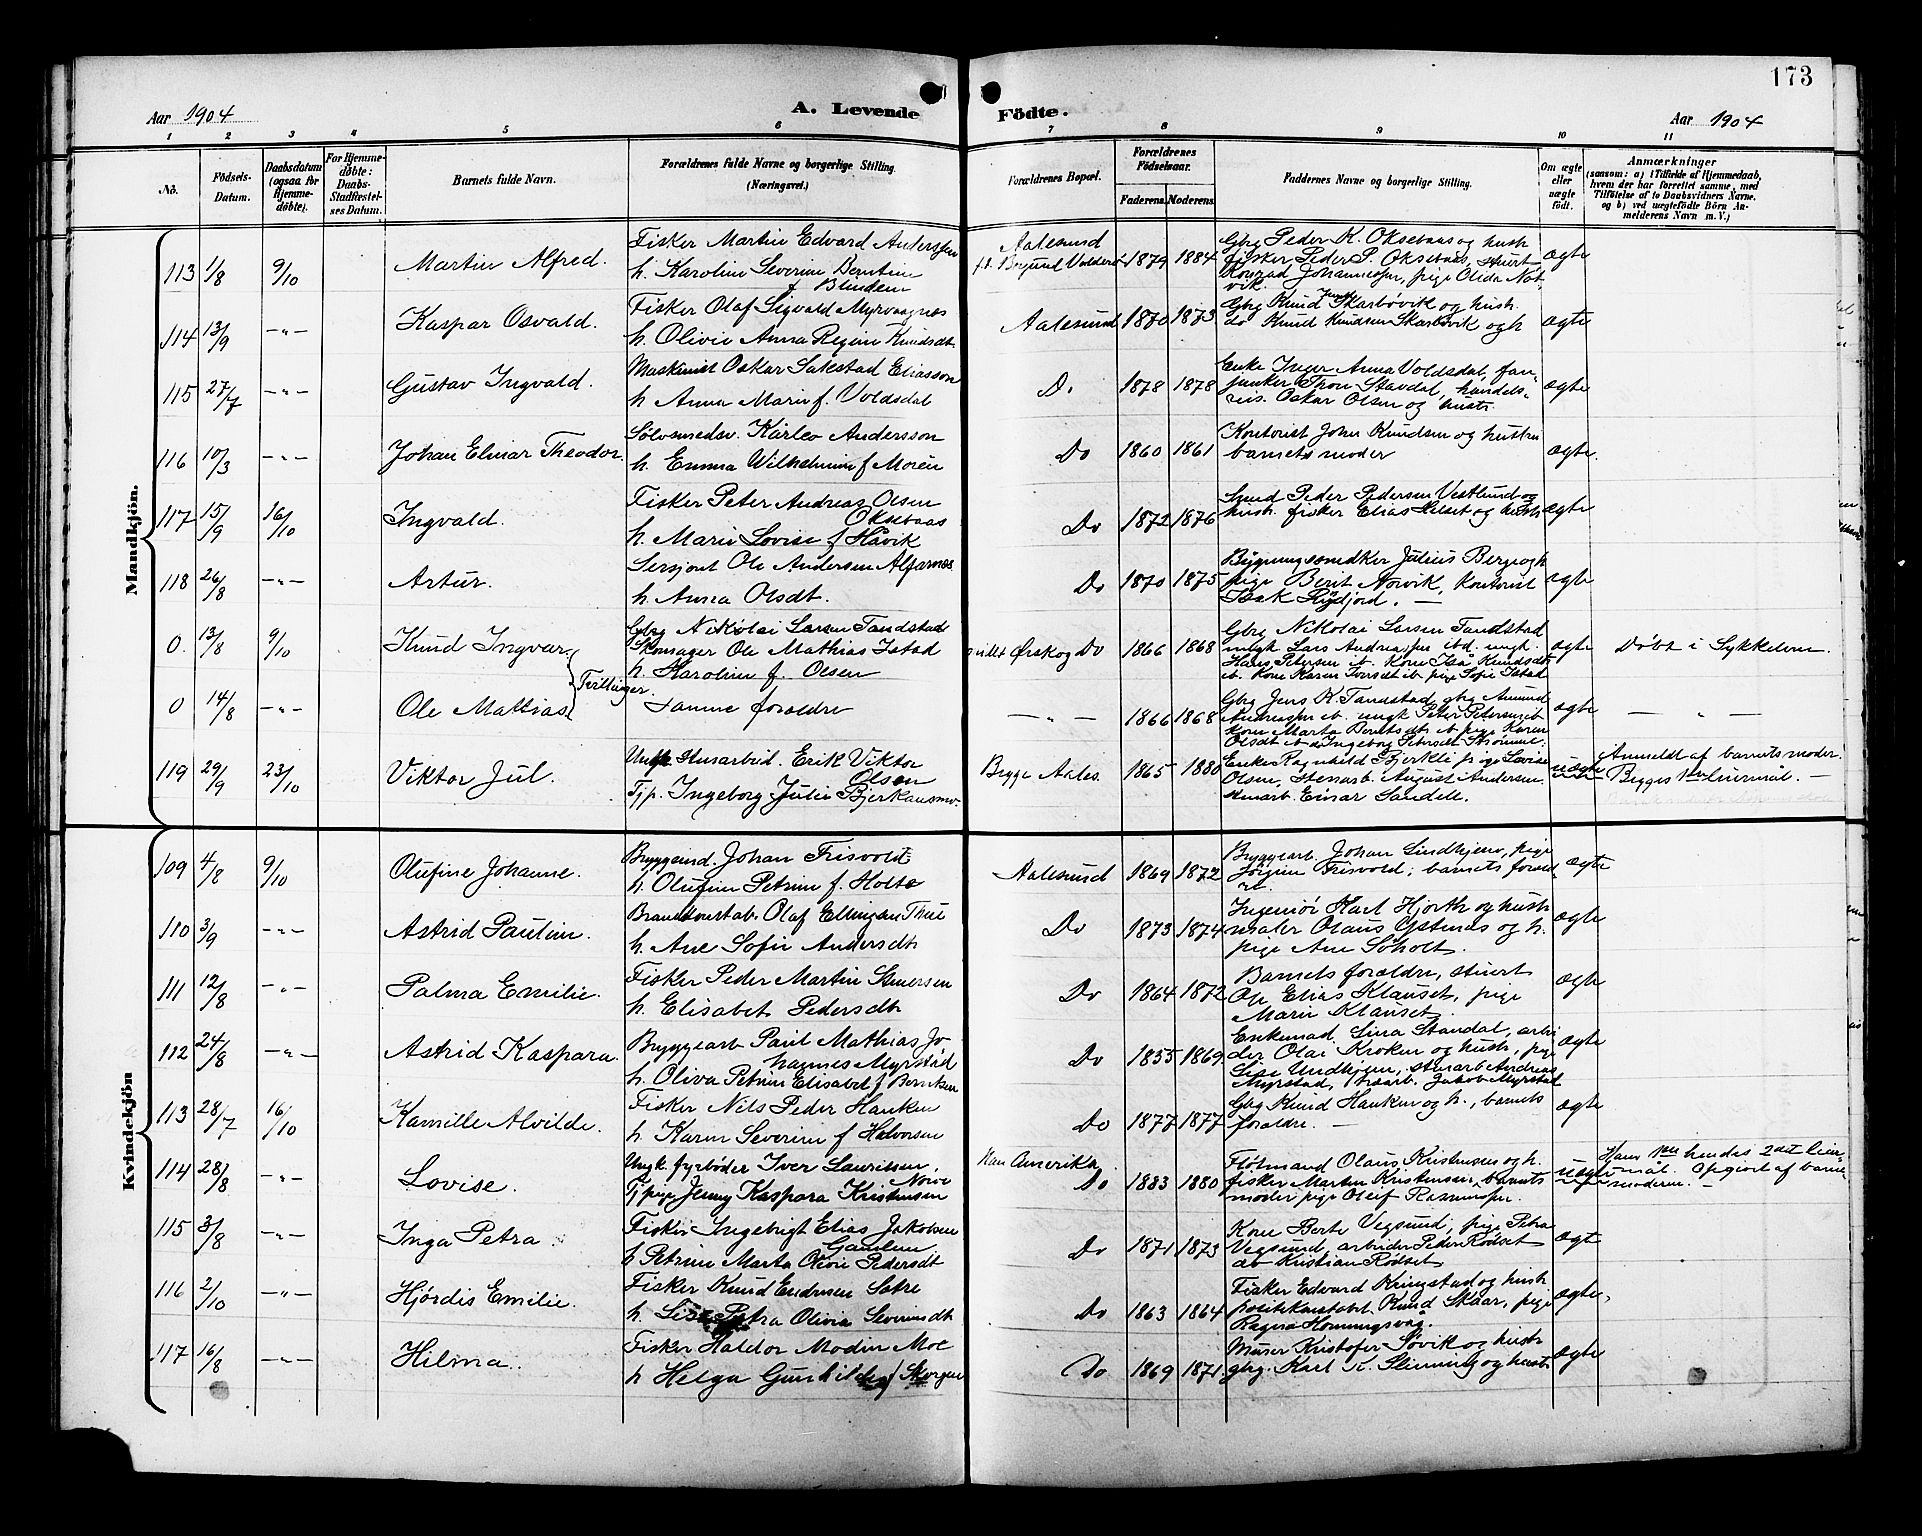 173
Aar 1904
A. Levende Födte.
Aar 1904
1 2 3 4 5 6 7 8 9 10 11
No.
Födsels-Datum.
Daabsdatum (ogsaa for Hjemmedøbte).
For Hjemmedøbte: Daabs-Stadfæstelses Datum.
Barnets fulde Navn.
Forældrenes fulde Navne og borgerlige Stilling. (Næringsvei.)
Forældrenes Bopæl.
Forældrenes Fødselsaar.
Faderens. Moderens.
Faddernes Navne og borgerlige Stilling.
Om ægte eller uægte født.
Anmærkninger
(saasom: a) i Tilfælde af Hjemmedaab, hvem der har forrettet samme, med Tilføielse af to Daabsvidners Navne, og b) ved uægtefødte Börn Anmelderens Navn m. V.)
Mandkjön.
113 1/8 9/10 Martin Alfred.
Fisker Martin Edvard Anderssen
h. Karoline Severine Berntine
f Blindem
Aalesund
1879 1884
Gbrg Peder K. Oksebaas og hustr
fisker Peder P. Oksebaas,
Konrad Johannessen, pige Olida
ægte
114 13/9 -"- Kaspar Osvald.
Fisker Olaf Sigvald Myrvaagnes
h. Olivie Anna Regine Knudsdt.
Aalesund 1870 1873
Gbrg Knud Skarbövik og hustr.
do Knud Knudsen Skarbövik og h
ægte
115 27/7 -"- Gustav Ingvald.
Maskinist Oskar Satestad Eliasson
h Anna Marie f. Voldsdal
Do 1878 1878
Enke Inger Anna Voldsdal,
Thon Stavdal, handels-
reis. Oskar Olsen og hustr.
ægte
116 10/3 -"- Johan Elmar Theodor.
Sølvsmedsv. Karleo Andersson
h. Emma Wilhelmine f Morén
Do 1860 1861
Kontorist John Knudsen og hustru
barnets moder
ægte.
117 15/9 16/10 Ingvald.
Fisker Peter Andreas Olsen
Oksebaas
h. Marie Lovise f Håvik
Do 1872 1876
Smed Peder Pedersen Vestlund og
hustr. fisker Elias Helset og hustr
ægte
118 26/8 -"- Artur.
Sersjant Ole Andersen Alfarnes
h Anna Olsdt.
Do 1870 1875
Julius Berge og h
pige Berit Norvik, kontorist
Isak Rydjord. —
ægte
0. 13/8 9/10 Knud Ingvar
Gbrg Nikolai Larsen Tandstad
Skomager Ole Mathias Istad
h. Karoline f. Olsen
Ørskog Do 1866 1868
Gbrg Nikolai Larsen Tandstad
ungk Lars Andreassen ibd. ungk.
Hans Petersen ib. Kone Knudsdt
ib. Kone Karen ib pige Sofie Istad
ægte
Döbt i Sykkelven.
Tvillinger.
0 14/8 -"- Ole Mattias
Samme forældre
-"- 1866 1868
Gbrg Jens K Tandstad, gbrg Amund
Andreassen ib. ungk Peter Petersen ib
kone Marta Berntsdt ib pige Karen
Olsdt ib
ægte
-"-
119 29/9 23/10 Viktor Jul.
Ungk Stenarbeid. Erik Viktor
Olsen
Tjp. Ingeborg Julie Bjerkansmo
Begge Aales. 1865 1880
Enke Ragnhild Bjerkli, pige Lovise
Olsen, Stenarb. August Andersen
Stenarb. Einar Sandell.
uægte
Anmeldt af barnets moder.
Begges 1ste leiermål. —
Kvindekjön
109 4/8 9/10 Olufine Johanne.
Johan Frisvold
h. Olufine Petrine f. Holte
Aalesund 1869 1872
Bryggearb. Johan Lindhjem, pige
Jørgine Frisvold; barnets foræld
re.
ægte
110 3/9 -"- Astrid Pauline.
Brandkonstab. Olaf Ellingsen Thue
h. Ane Sofie Andersdt
Do 1873 1874
Ingeniör Karl Hjorth og hustr
maler Olaus Ystenæs og h.
pige Ane Soholt.
ægte
111 12/8 -"- Palma Emilie.
Fisker Peder Martin
h. Elisabet Pedersdt
Do 1864 1872
Barnets forældre, stuert
Ole Elias Klauset, pige
Marie Klauset.
ægte
112 24/8 -"- Astrid Kaspara.
Bryggearb Paul Mathias Jo-
hannes Myrstad
h. Oliva Petrine Elisabet f Berntsen
Do 1855 1869
Enkemad. Lina Standal, arbei
der Olai Kroken og hustr, pige
Lise Lindhjem, stenarb Andreas
Myrstad, Jakob Myrstad
ægte
113 28/7 16/10 Kamille Alvilde.
Fisker Nils Peder Hanken
h. Karen Severine f Halvorsen
Do 1877 1877
Gbrg Knud Hanken og h., barnets
forældre. —
ægte
114 28/8 -"- Lovise.
Ungk. fyrbøder Iver Lauritssen
Norve
Tj pige Jenny Kaspara Kristensen
Han Amerika
Do 1883 1880
Fløtmand Olaus Kristensen og h.
fisker Martin Kristensen, barnets
moder pige Oleif Rasmussen.
uægte
Hans 1ste hendes 2det leier-
mål. Opgivet af barne-
moderen. —
115 3/8 -"- Inga Petra
Fisker Ingebrigt Elias Jakobsen
Gamlem
h Petrine Marta Olivie Pedersdt
Do 1871 1873
Kone Berte Vegsund, pige Petra
Vegsund, arbeider Peder Rødset
do Kristian Rødset
ægt
116 2/10 -"- Hjördis Emilie.
Fisker Knud Endresen Sætre
h. Lise Petra Olivia Severinsdt
Do 1863 1864
Fisker Edvard Ringstad og hustr
politikonstabel Knud Skaar, pige
Ragna Honningsvåg.
ægte,
117 16/8 -"- Hilma.
Fisker Haldor Modin Moe
h Helga Gunhilda f Skorgen
Do 1869 1871
Murer Kristofer Søvik og hustr
gbrg. Karl K. Slinning og hustr
ægte